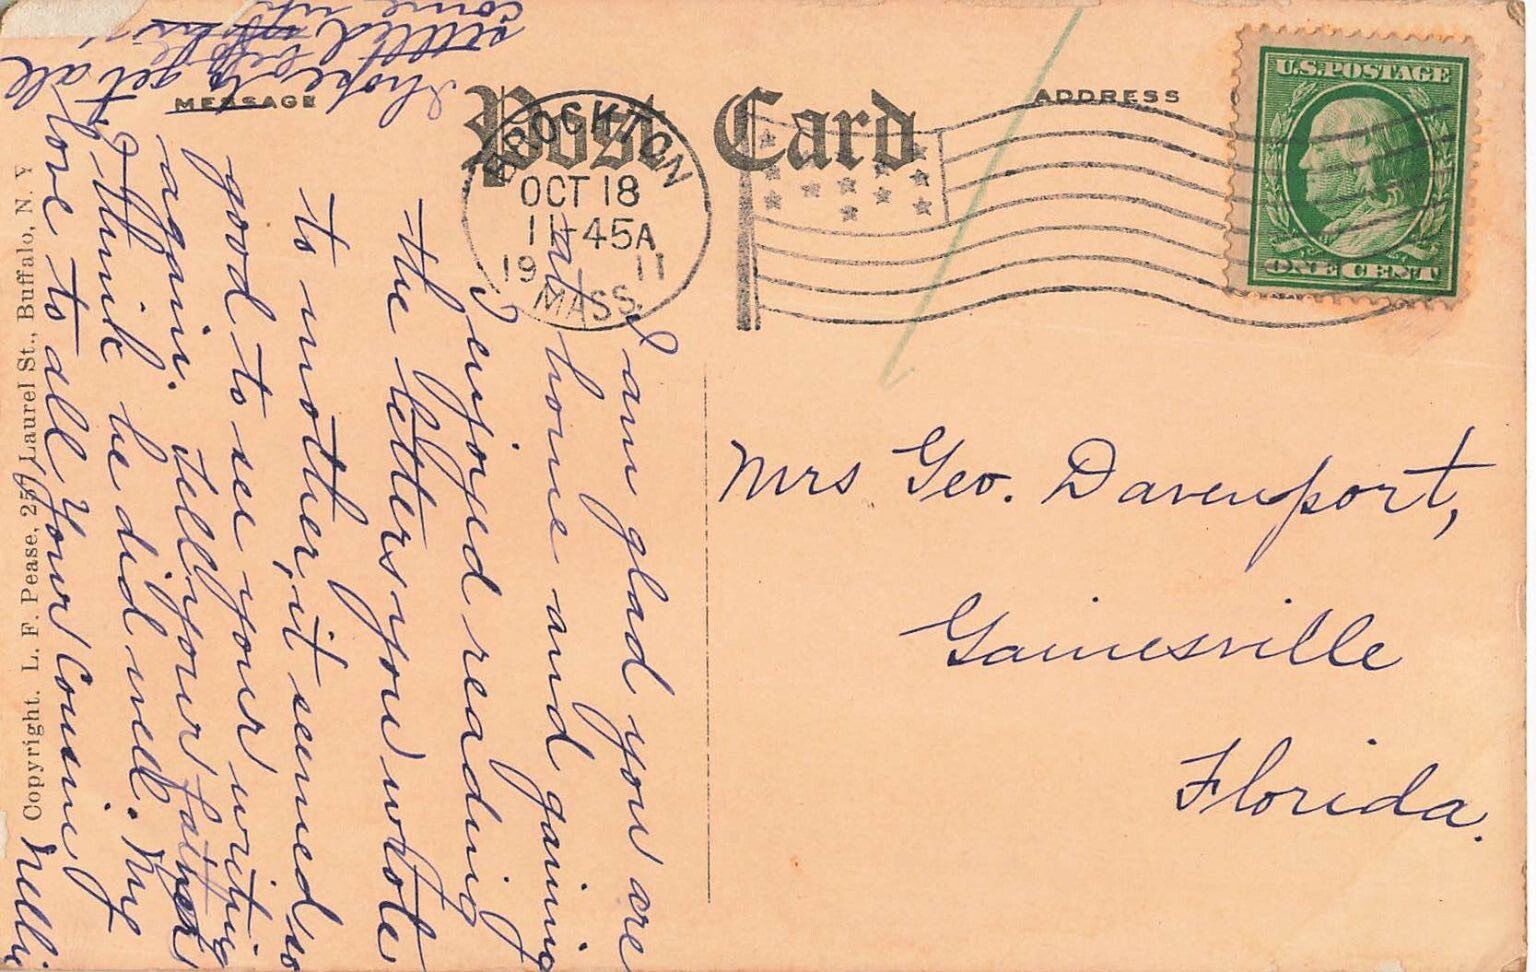 Post Card
MESSAGE
ADDRESS
U.S.POSTAGE
ONE CENT
BROCKTON
OCT 18
11-45A
19 11
MASS.
Mrs Geo. Davenport,
Gainesville
Florida.
I am glad you are
at home and gaining
I enjoyed reading
the letters you wrote
to mother, it seemed so
good to see your writing
again. Tell your father
I think he did well. My
love to all Your Cousin
Nellie
I hope to get all
settled before
come up
Copyright. L. F. Pease, 257 Laurel St., Buffalo, N. Y